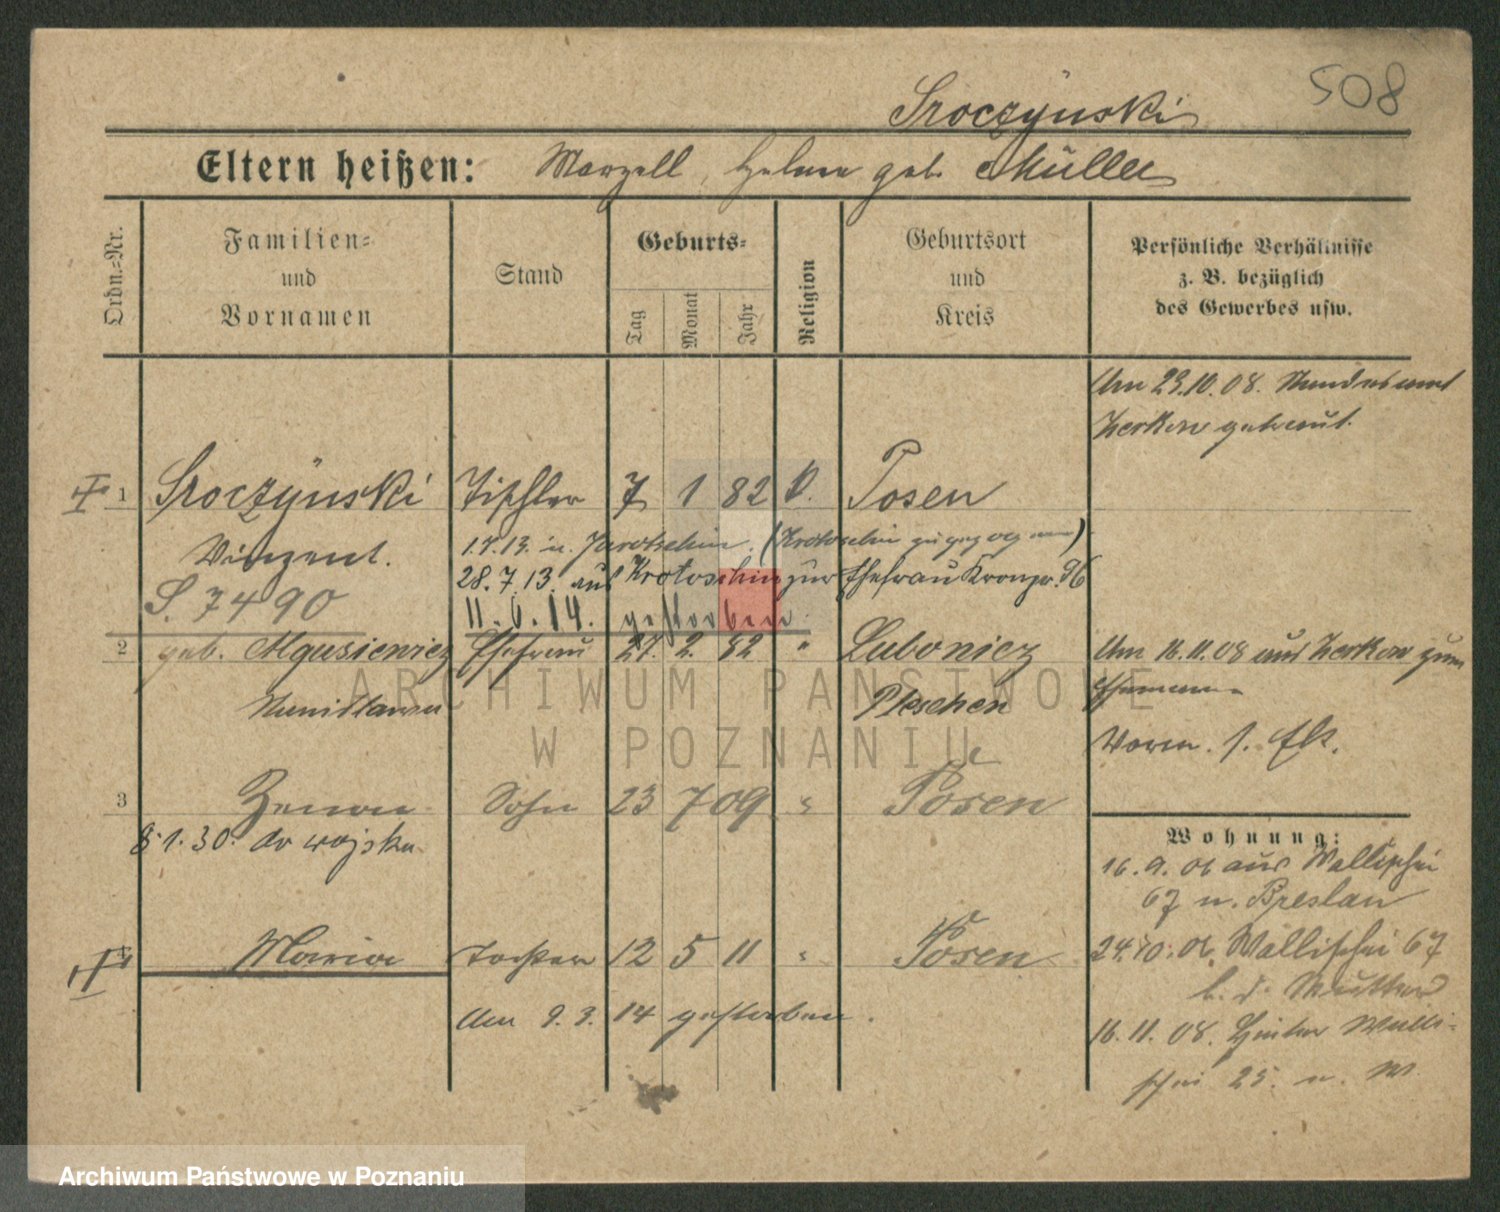 508
Sroczyński
Eltern heißen: Marzell, Helene geb. Müller
Ordn.-Nr.
Familien-
und
Vornamen
Stand
Geburts-
Tag
Monat
Jahr
Religion
Geburtsort
und
Kreis
Persönliche Verhältnisse
z. B. bezüglich
des Gewerbes usw.
Am 23.10.08. Standesamt
Zerkow getraut.
1 Sroczyński Tischler 7 1 82 k. Posen
Vinzent. 1.7.13. n. Jarotschin. (Krotoschin zugezogen)
28.7.13. aus Krotoschin zur Ehefrau Kronpr. 96
S. 7490 11.6.14. gestorben.
2 geb. Mgusiewicz Ehefrau 27. 2. 82 " Lubonicz Am 16.11.08 aus Zerkow zum
Stanislawa Pleschen Ehemann
Vorm. s. Ek.
3 Zenon Sohn 23 7 09 " Posen
8.1.30. do wojska
Wohnung:
16.9.06 aus Wallischei
67 n. Breslau
Maria Tochter 12 5 11 " Posen 24.10.06. Wallischei 67
b. d. Mutter
Am 9.3.14 gestorben. 16.11.08. Hinter Walli-
schei 25. n. W.
ARCHIWUM PAŃSTWOWE
W POZNANIU
Archiwum Państwowe w Poznaniu